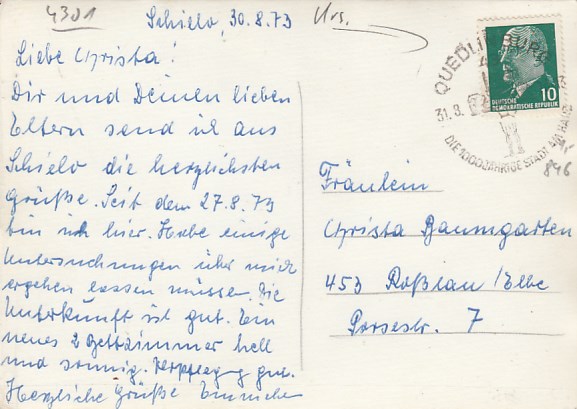 4301
Schielo, 30.8.73
Urs.
Liebe Christa!
Dir und Deinen lieben
Eltern send ich aus
Schielo die herzlichsten
Grüße. Seit dem 27.8.73
bin ich hier. Habe einige
Untersuchungen über mich
ergehen lassen müssen. Die
Unterkunft ist gut. Ein
neues 2 Bettzimmer hell
und sonnig. Verpflegung gut.
Herzliche Grüße
QUEDLINBURG
31.8.
DIE 1000JÄHRIGE STADT AM HARZ
DEUTSCHE
DEMOKRATISCHE REPUBLIK
10
846
Fräulein
Christa Baumgarten
453 Roßlau/Elbe
Porsestr. 7